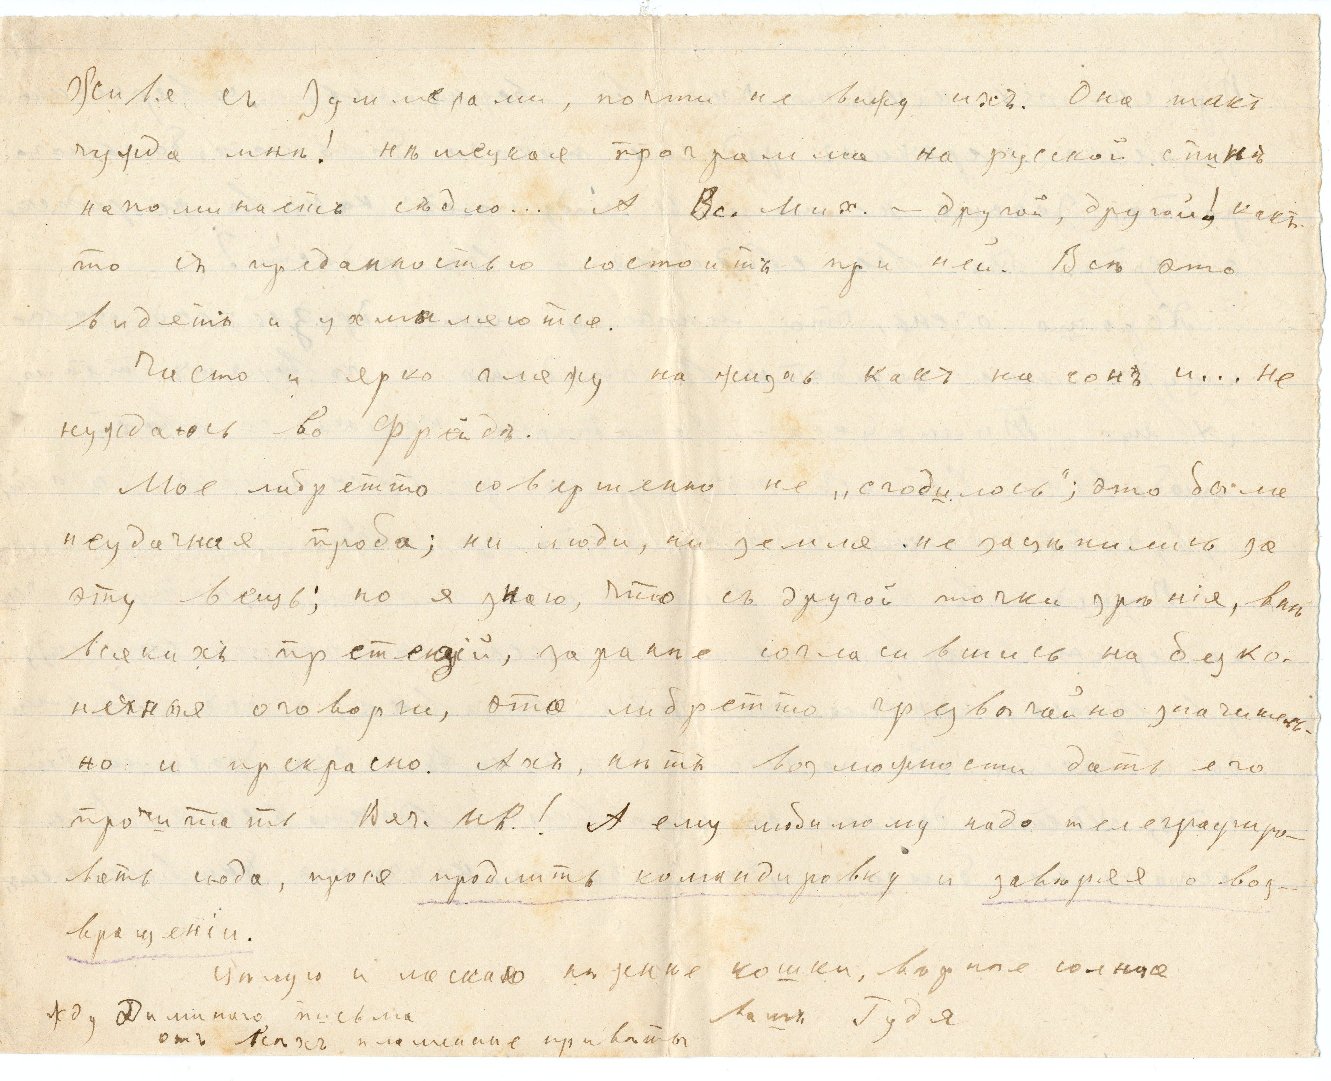 Живя съ Зуммерами, почти не вижу ихъ. Она такъ
чужда мнѣ! нѣмецкая программа на русской спинѣ
напоминаетъ сѣдло... А Вс. Мих. – другой, другой! какъ-
то съ преданностью состоитъ при ней. Всѣ это
видятъ и ухмыляются.
Часто и ярко гляжу на жизнь какъ на сонъ и... не
нуждаюсь во Фрейдѣ.
Мое либретто совершенно не „сгодилось"; это была
неудачная проба; ни люди, ни земля не зацѣпились за
эту вещь; но я знаю, что съ другой точки зрѣнія, внѣ
всякихъ претензій, заранѣе согласившись на безко-
нечныя оговорки, это либретто чрезвычайно значитель-
но и прекрасно. Ахъ, нѣтъ возможности дать его
прочитать Вяч. Ив.! А ему любимому надо телеграфиро-
вать сюда, прося продлить командировку и завѣряя о воз-
вращеніи.
Цѣлую и ласкаю нѣжные кошки, вѣрные солнца
Вашъ Гудя
жду Диминого письма
отъ Всѣхъ пламенные привѣты